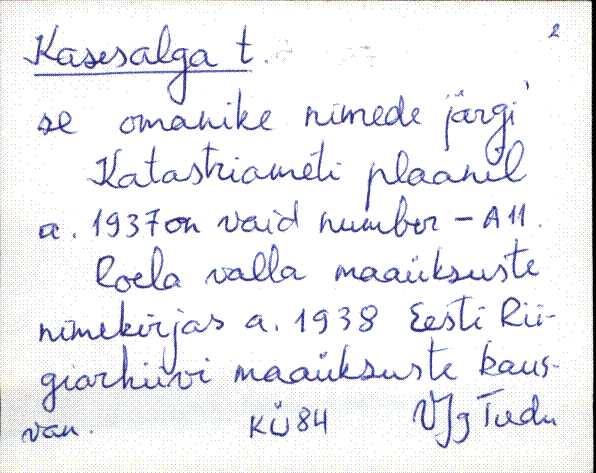 2
Kasesalga t.
se omanike nimede järgi
Katastriameti plaanil
a. 1937 on vaid number - A 11.
Roela valla maaüksuste
nimekirjas a. 1938 Eesti Rii-
giarhiivi maaüksuste kaus-
van. KÜ 84 VJg Tudu